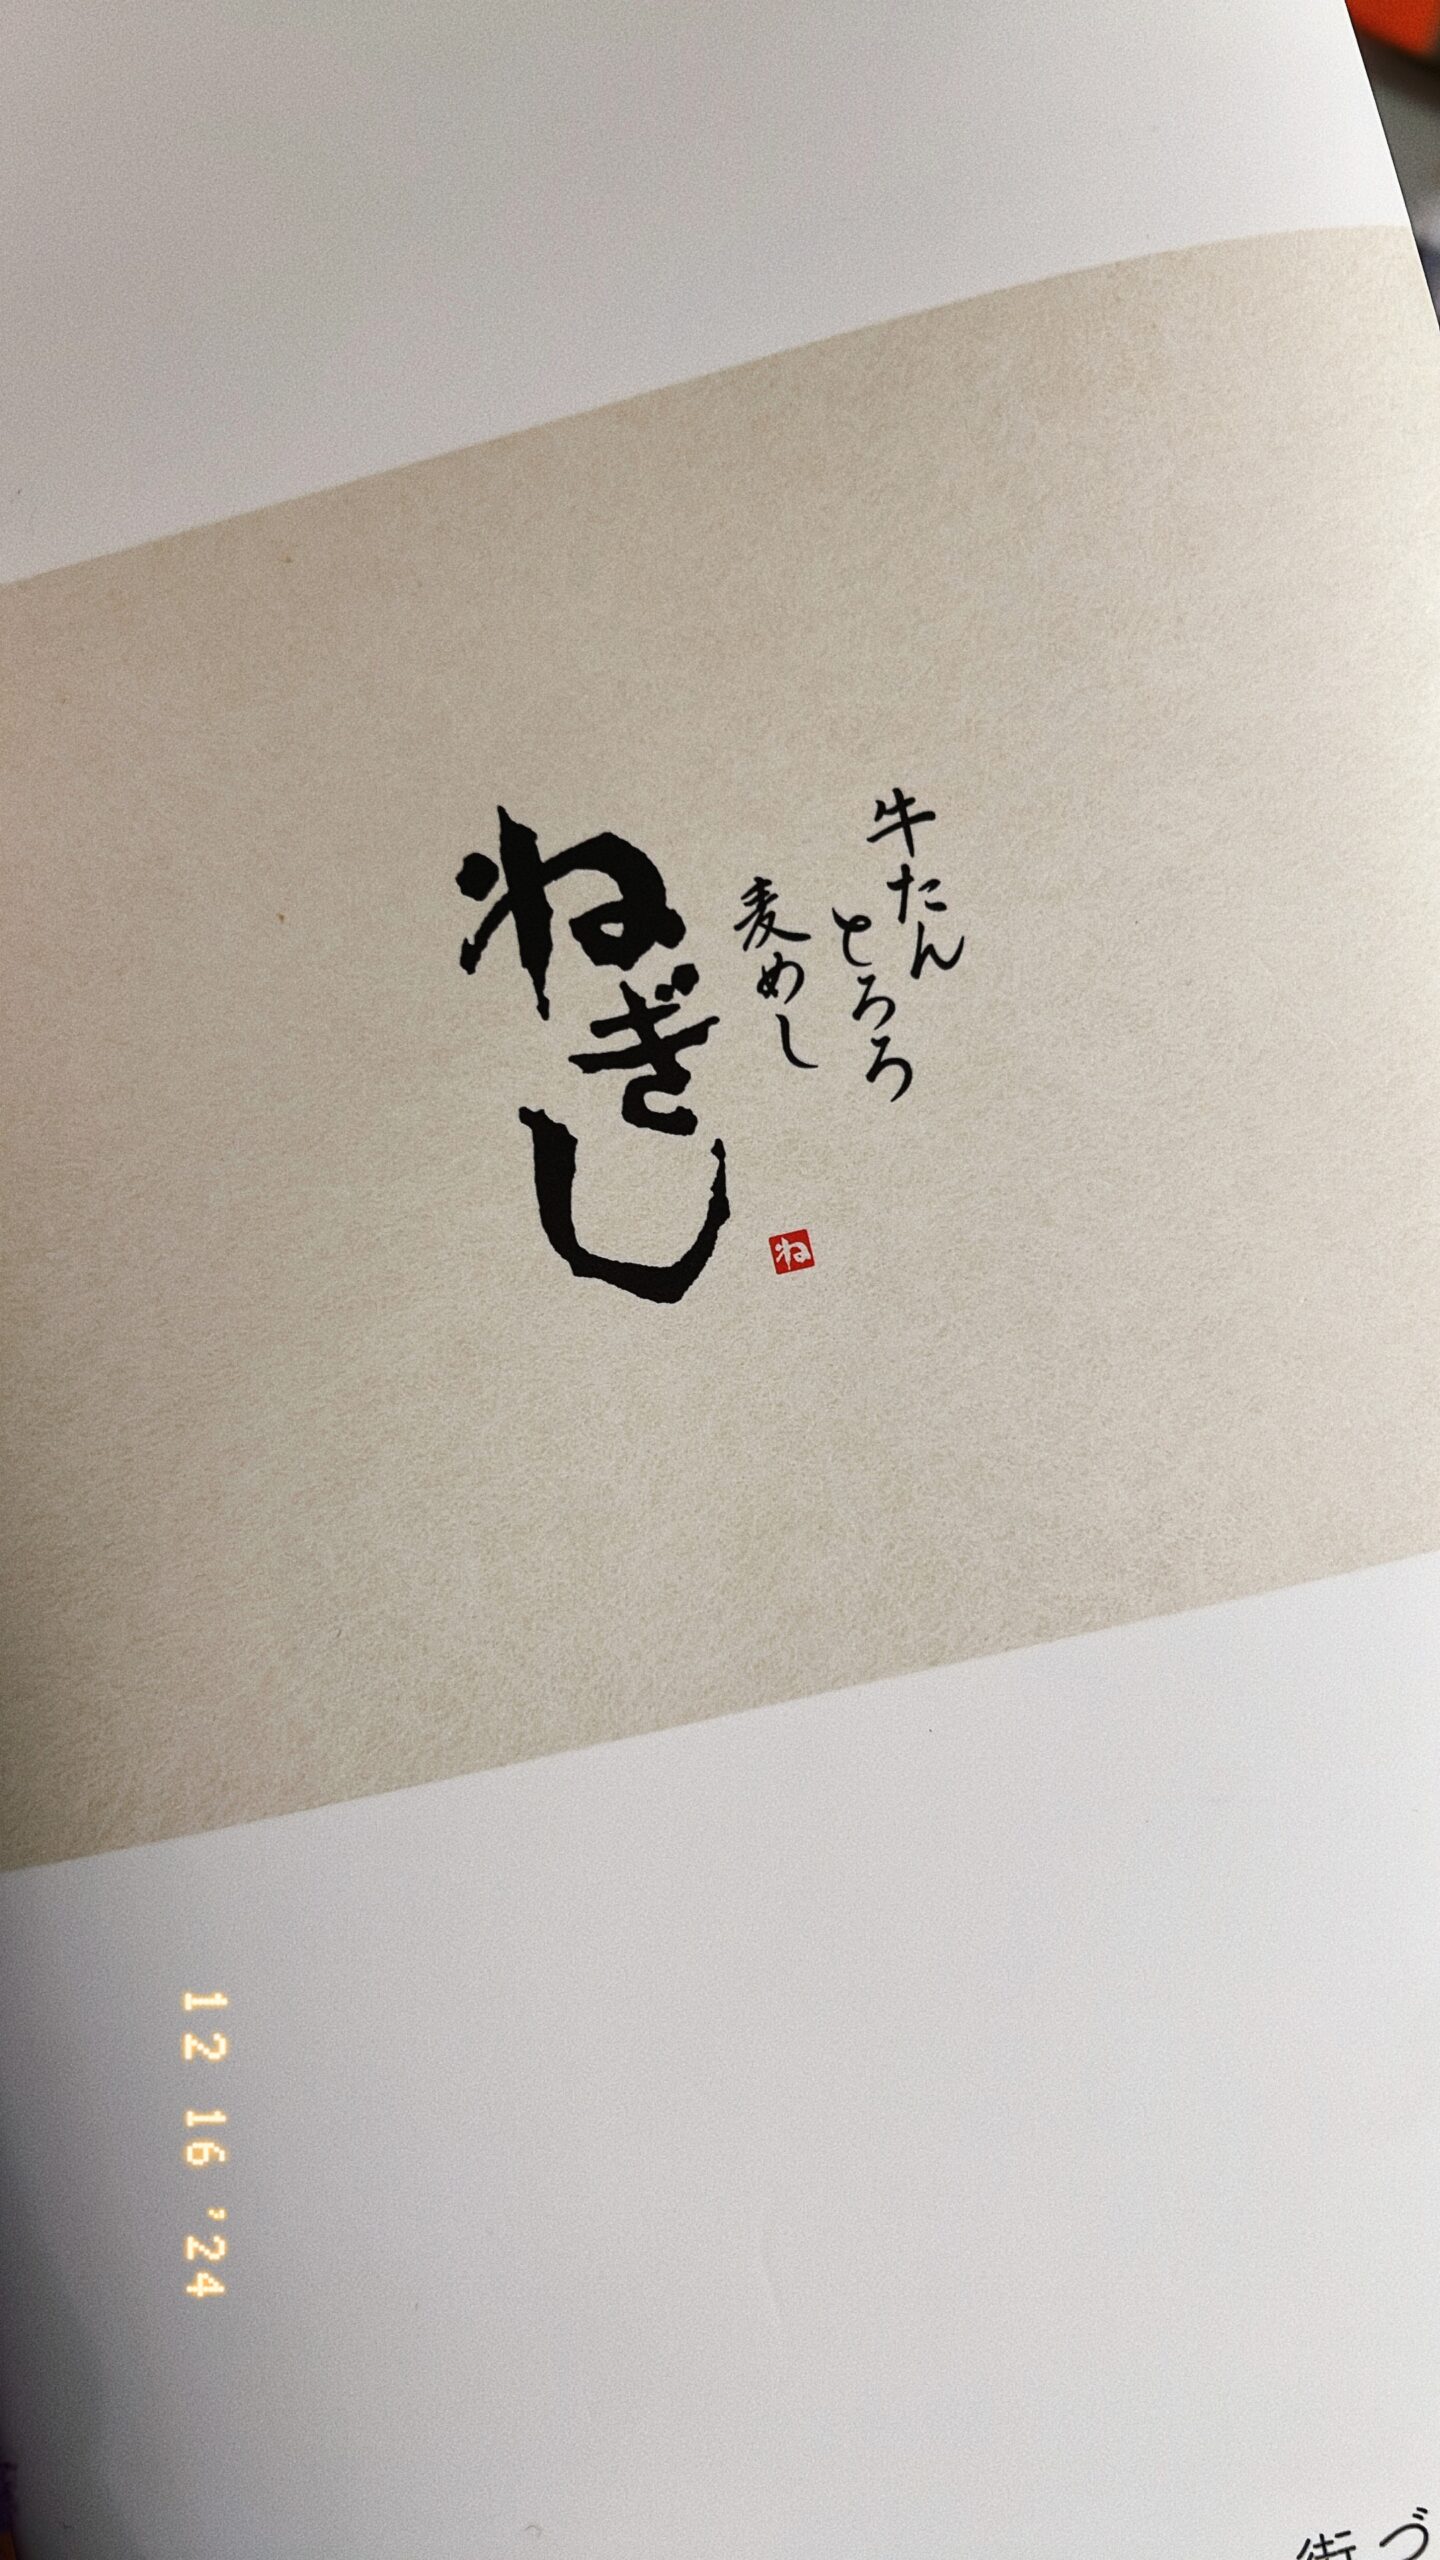 牛たん
とろろ
麦めし
ねぎし
ね
12 16 '24
街づ